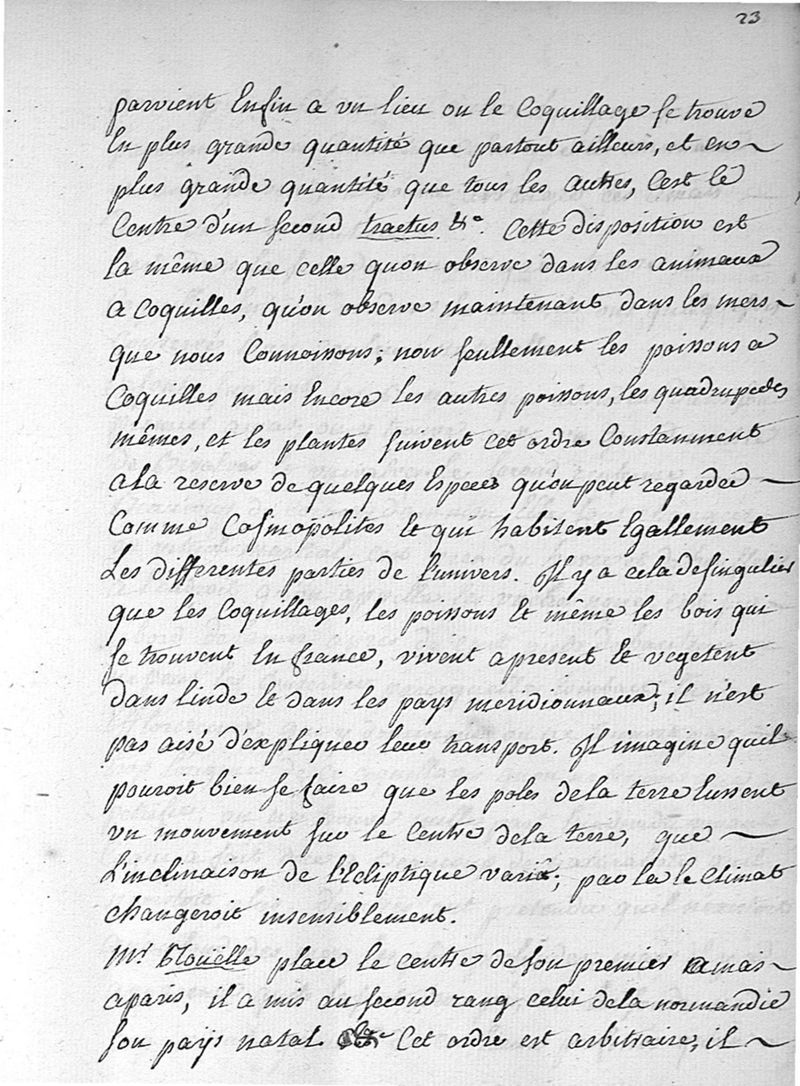 23
parvient Enfin a un lieu ou le Coquillage se trouve
En plus grande quantité que partout ailleurs, et en
plus grande quantité que tous les autres, C'est le
Centre d'un second tractus &c. Cette disposition est
la même que celle quon observe dans les animaux
a Coquilles, qu'on observe maintenant dans les mers
que nous Connoissons; non seullement les poissons a
Coquilles mais Encore les autres poissons, les quadrupedes
mêmes, et les plantes suivent cet ordre Constamment
a la reserve de quelques Especes qu'on peut regarder
Comme Cosmopolites Et qui habitent Egallement
Les differentes parties de l'univers. Il y a cela de singulier
que les Coquillages, les poissons Et même les bois qui
se trouvent En france, vivent apresent Et vegetent
dans linde Et dans les pays meridionnaux; il n'est
pas aisé d'expliquer leur transport. Il imagine qu'il
pouroit bien se faire que les poles de la terre Eussent
un mouvement sur le Centre de la terre, que
L'inclinaison de l'Ecliptique varia; par la le Climat
changeroit insensiblement.
Mr. Rouëlle place le centre de son premier amas
a paris, il a mis au second rang celui de la normandie
son païs natal. Cet ordre est arbitraire, il